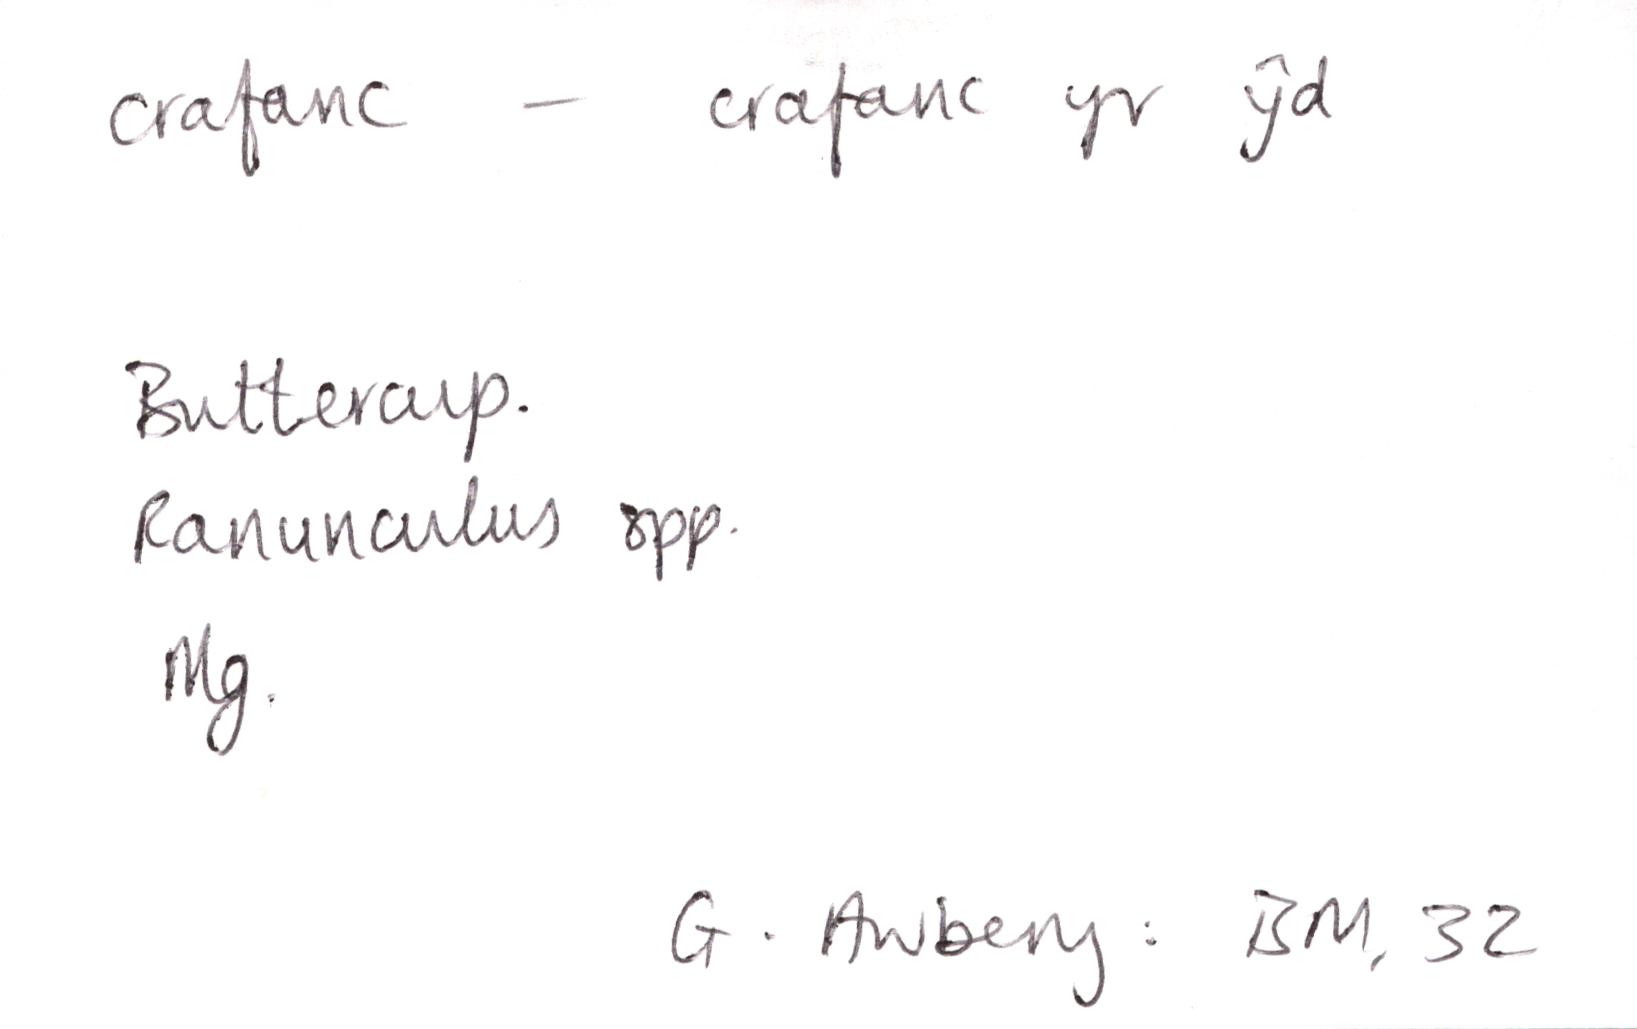 crafanc – crafanc yr ŷd
Buttercup.
Ranunculus spp.
Mg.
G. Awbery: BM, 32